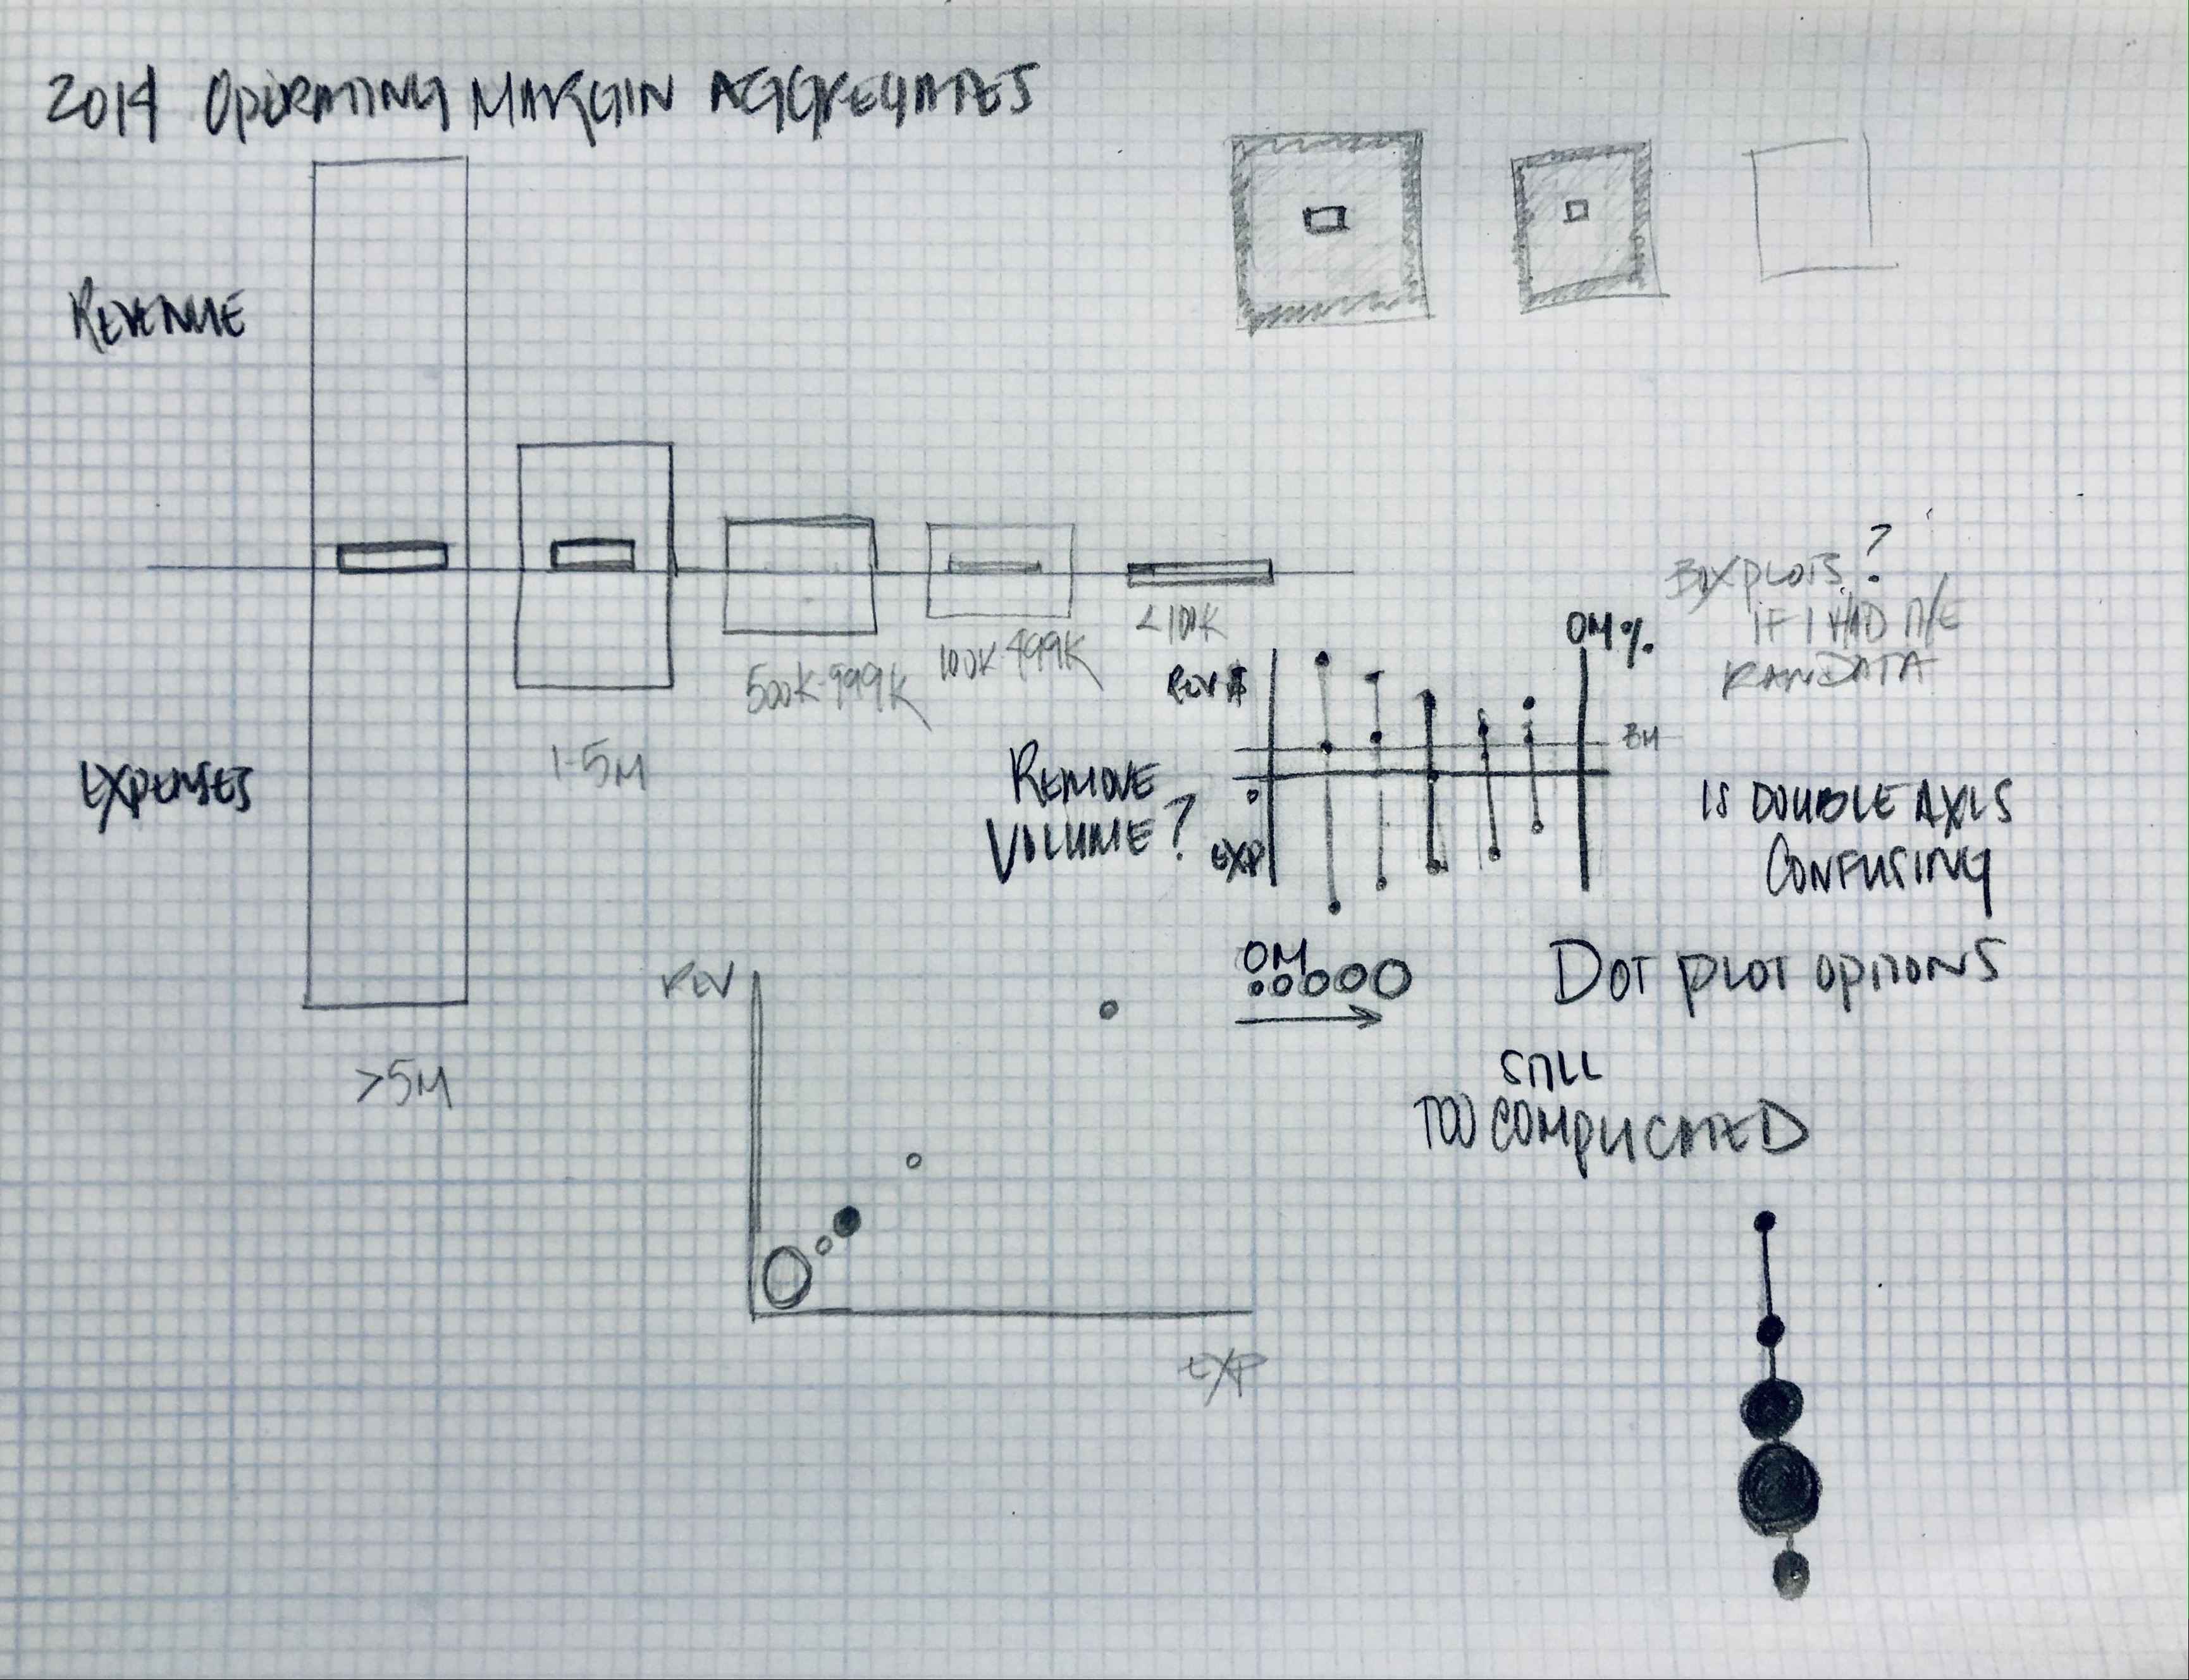 2014 OPERATING MARGIN AGGREGATES
REVENUE
EXPENSES
>5M
1-5M
500K-999K
100K-499K
<100K
BOXPLOTS?
IF I HAD
RAW DATA
REV $
EXP
OM%
REMOVE
VOLUME?
IS DOUBLE AXIS
CONFUSING
OM
DOT PLOT OPTIONS
STILL
TOO COMPLICATED
REV
EXP